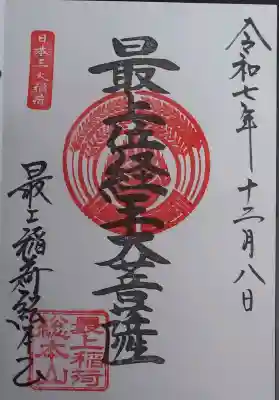 令和七年十二月八日
日本三大稲荷
最上位経王大菩薩
最上稲荷総本山
最上稲荷
総本山